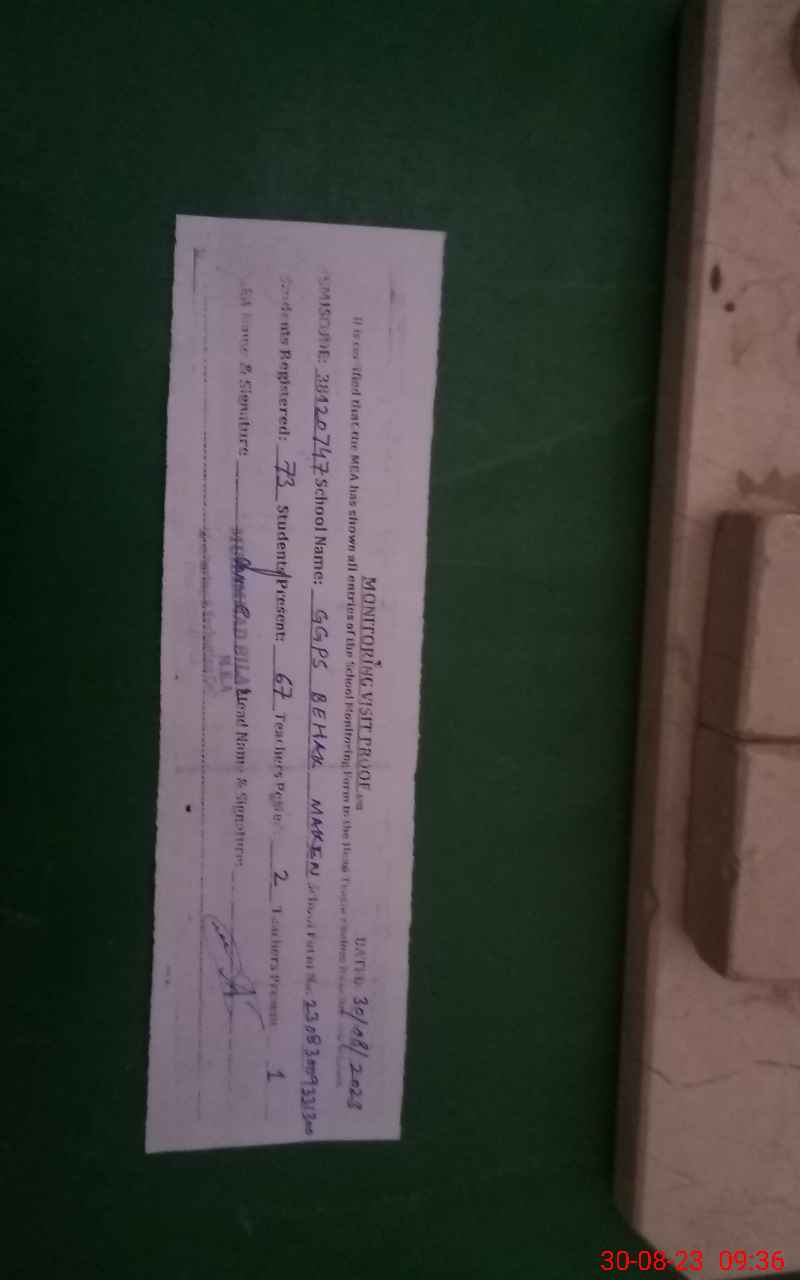 MONITORING VISIT PROOF
DATED: 30/08/2023
It is certified that the MEA has shown all entries of the School Monitoring Form to the Head Teacher
EMISCODE: 38120747 School Name: GGPS BEHAK MAKEN School Form No: 23083009331300
Students Registered: 73 Students Present: 67 Teachers Posted: 2 Teachers Present 1
MEA Name & Signature MUHAMMAD BILAL Head Name & Signature:
MEA
30-08-23 09:36